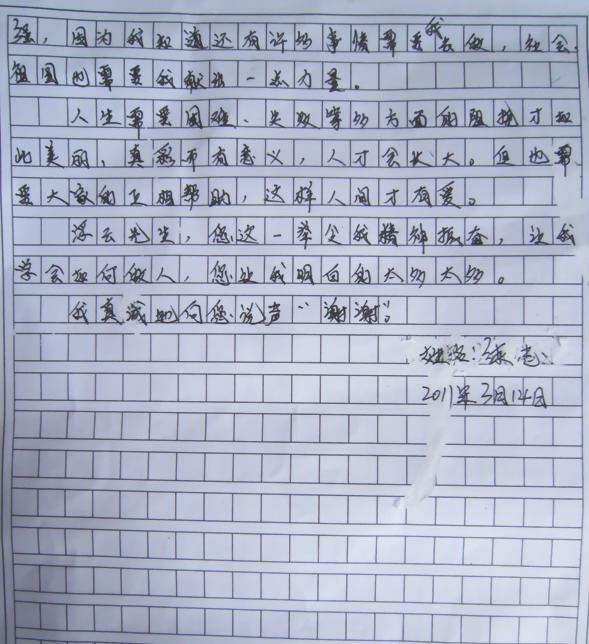 强，因为我知道还有许多事情需要我去做，社会、
祖国也需要我献出一点力量。
人生需要困难、失败等多方面的阻挠才如
此美丽，真彩而有意义，人才会长大。但也需
要大家的互相帮助，这样人间才有爱。
浮云先生，您这一举令我精神振奋，让我
学会如何做人，您让我明白的太多太多。
我真诚地向您说声“谢谢”。
姓名：张
2011年3月14日